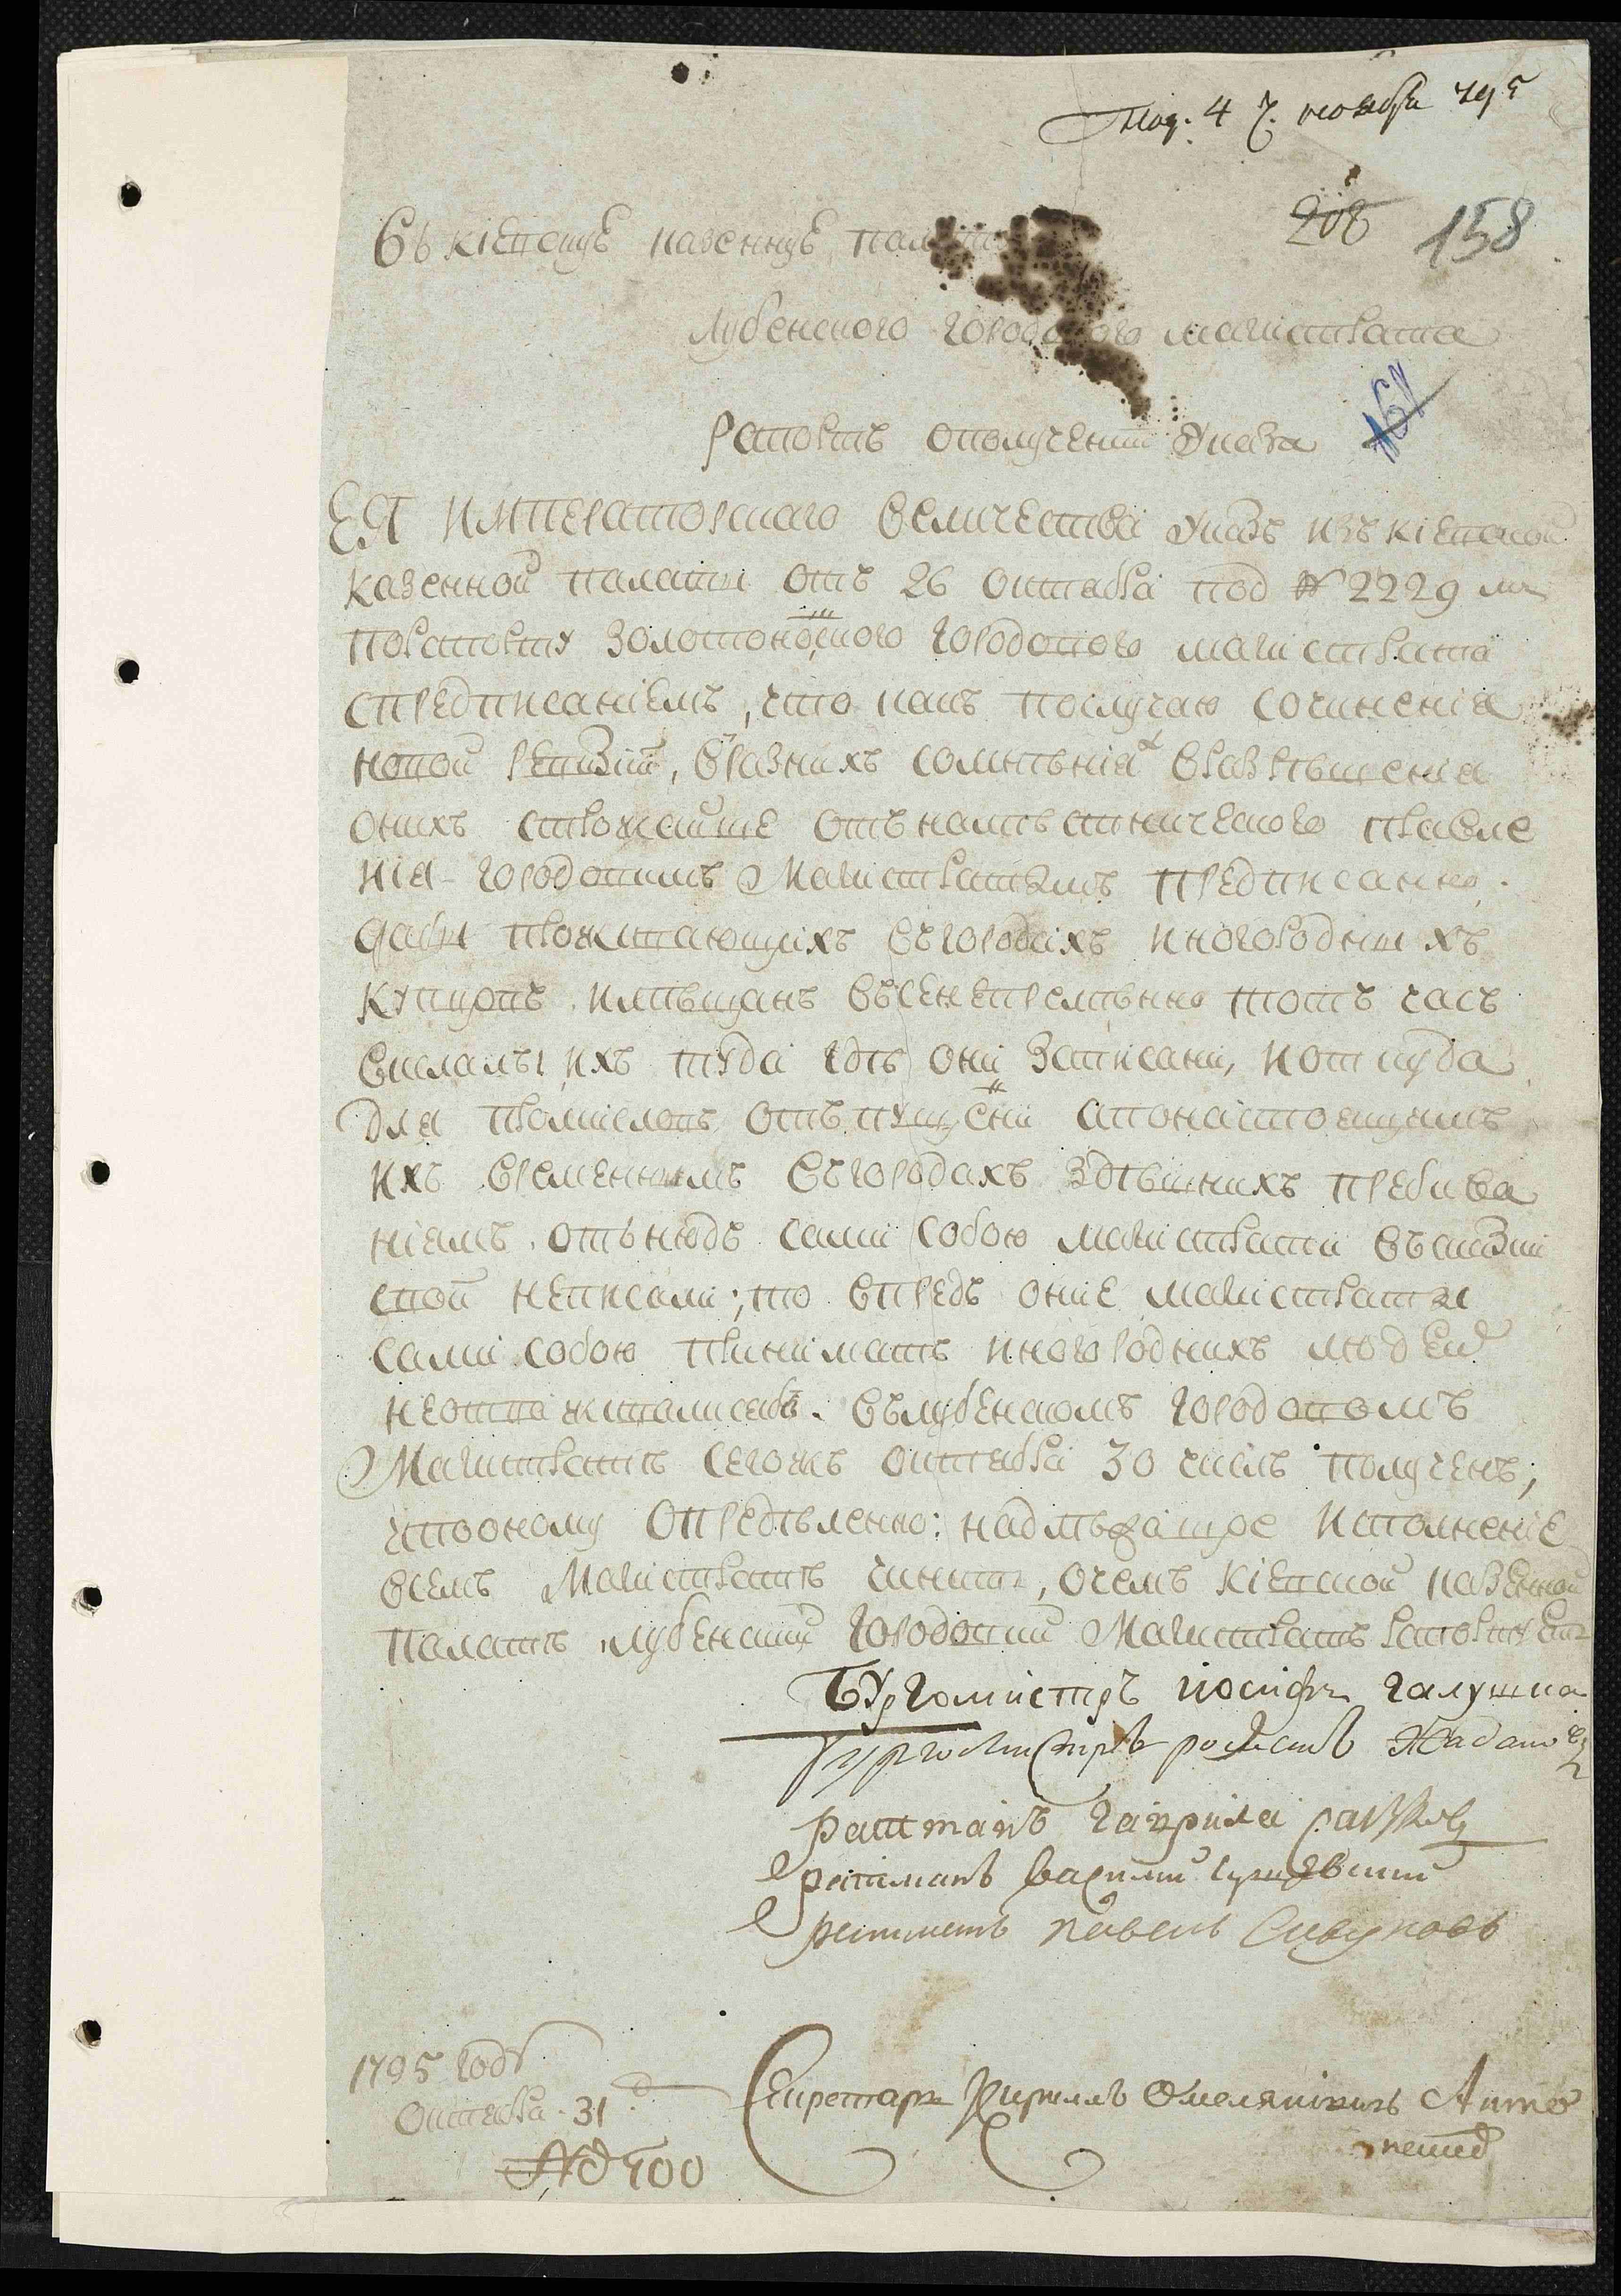 Под. 4 г. ноября 795
208 158
Въ киевскую казенную пал
Лубенского городового магистрата
161
Рапортъ ополучении указа
ЕЯ ИМПЕРАТОРСкаго Величества указъ изъ киевской
казенной палаты отъ 26 октабра под № 2229 м
порапорту золотоноского городового магистрата
спредписаниемъ, что какъ послучаю сочинения
новой ревизии, вразнихъ сомнѣния вразрѣшения
онихъ строжайше отънамѣстнического правле
ния городовимъ Магистратамъ предписанно.
дабы проживающихъ въгородахъ иногороднихъ
купцовъ имѣщанъ въсенепремѣнно тотъ часъ
висламы ихъ туда гдѣ они записани, и откуда
для промисловъ отъпущени апонастоящимъ
ихъ временнымъ въгородахъ здѣшнихъ пребива
ниемъ отънюдъ сами собою магистрати въ
свой неписали; то впредъ оние магистраты
сами собою принимать иногороднихъ людей
неотваживалисебъ. Вълубенскомъ городовомъ
Магистратѣ сегожъ октабра 30 числъ полученъ,
ипооному опредѣленно: надлѣжащое исполнение
всемъ Магистратѣ чинить, очемъ киевской казенной
палатѣ лубенский городовий Магистратъ рапортуетъ
Бургомистръ иосифъ галушка
Бургомистръ романъ Жадано
ратманъ гаврила
ратманъ василий
ратманъ павелъ Сивуновъ
1795 году
Октабра 31 д
№ 400
Секретарь Кириллъ Омеляновичъ Анто